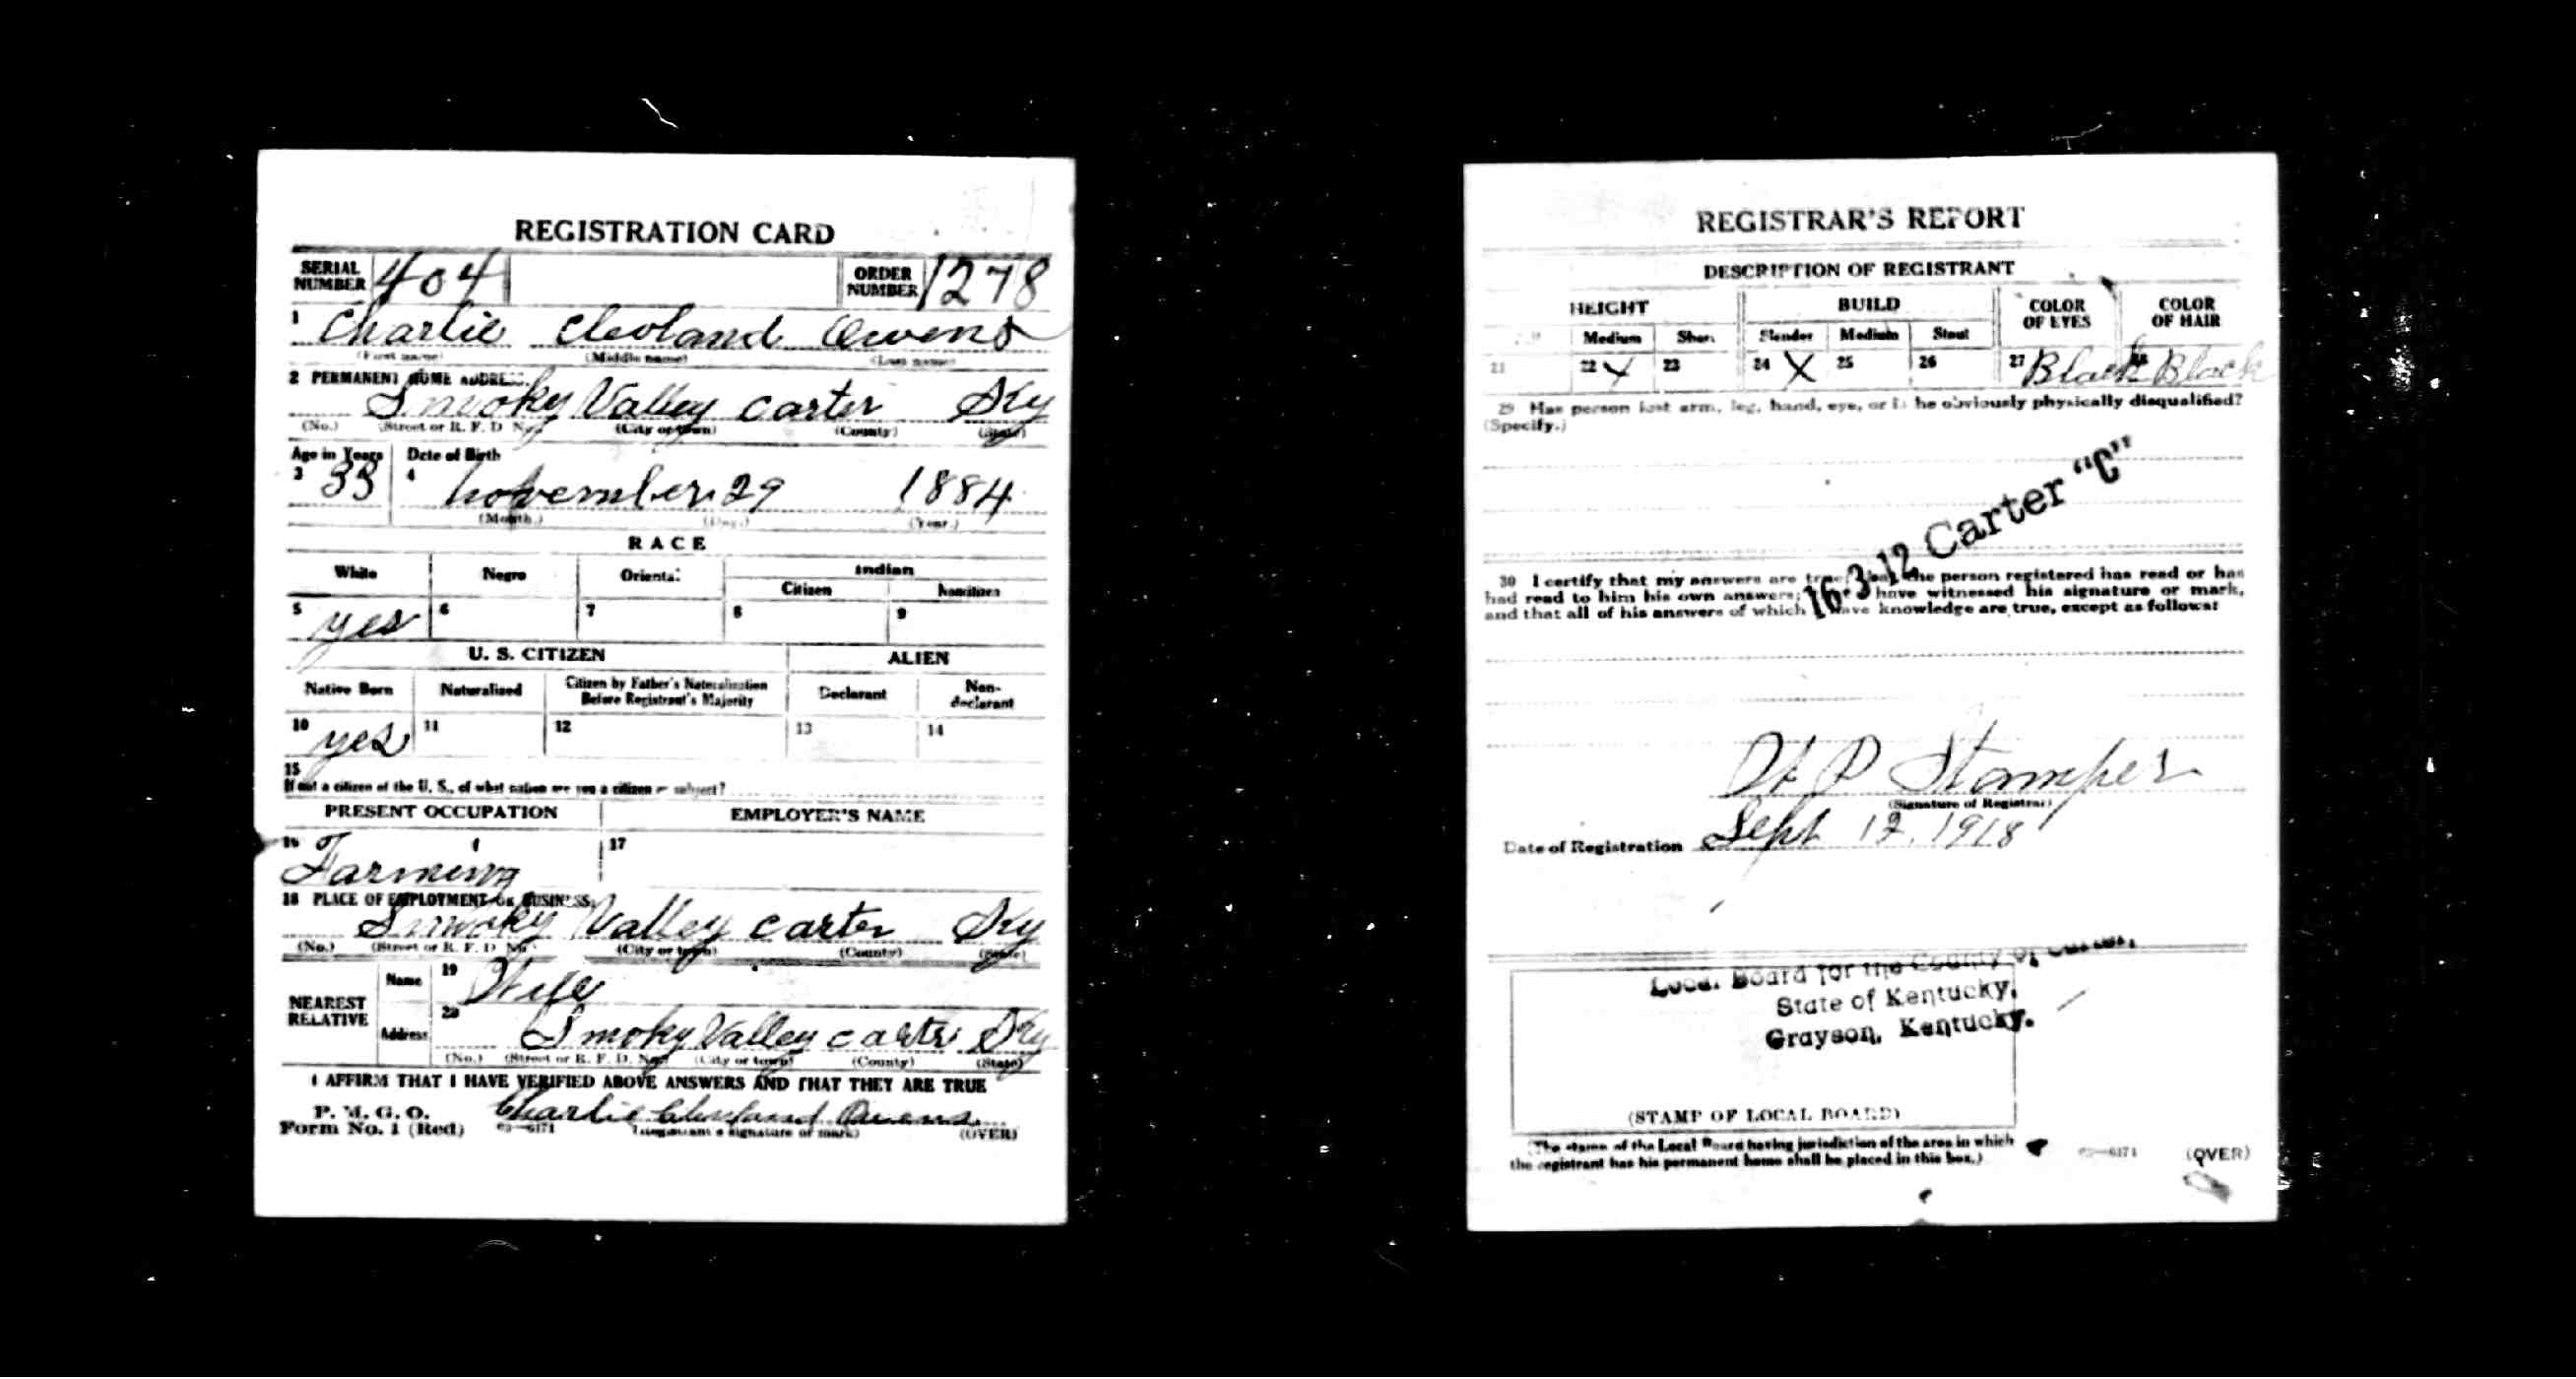 REGISTRATION CARD
SERIAL NUMBER 404 ORDER NUMBER 1278
1 Charlie Cleoland Owens
(First name) (Middle name) (Last name)
2 PERMANENT HOME ADDRESS.
Smoky Valley Carter Ky
(No.) (Street or R. F. D. No.) (City or town) (County) (State)
Age in Years Date of Birth
3 33 4 November 29 1884
(Month.) (Day.) (Year.)
RACE
White Negro Oriental Indian
Citizen Noncitizen
5 yes 6 7 8 9
U. S. CITIZEN ALIEN
Native Born Naturalized Citizen by Father's Naturalization Before Registrant's Majority Declarant Non-declarant
10 yes 11 12 13 14
15
If not a citizen of the U. S., of what nation are you a citizen or subject?
PRESENT OCCUPATION EMPLOYER'S NAME
16 Farming 17
18 PLACE OF EMPLOYMENT OR BUSINESS.
Smoky Valley Carter Ky
(No.) (Street or R. F. D. No.) (City or town) (County) (State)
NEAREST RELATIVE
Name 19 Wife
Address 20 Smoky Valley Carter Ky
(No.) (Street or R. F. D. No.) (City or town) (County) (State)
I AFFIRM THAT I HAVE VERIFIED ABOVE ANSWERS AND THAT THEY ARE TRUE
P. M. G. O.
Form No. 1 (Red) Charlie Cleveland Owens
03—6171 (Registrant's signature or mark) (OVER)
REGISTRAR'S REPORT
DESCRIPTION OF REGISTRANT
HEIGHT BUILD COLOR OF EYES COLOR OF HAIR
Medium Short Slender Medium Stout
21 22 X 23 24 X 25 26 27 Black 28 Black
29 Has person lost arm, leg, hand, eye, or is he obviously physically disqualified?
(Specify.)
16-3-12 Carter "C"
30 I certify that my answers are true; that the person registered has read or has
had read to him his own answers; that I have witnessed his signature or mark,
and that all of his answers of which I have knowledge are true, except as follows:
Stamper
(Signature of Registrar)
Date of Registration Sept 12, 1918
Local Board for the County of Carter,
State of Kentucky,
Grayson, Kentucky.
(STAMP OF LOCAL BOARD)
(The stamp of the Local Board having jurisdiction of the area in which
the registrant has his permanent home shall be placed in this box.)
03—6171 (OVER)